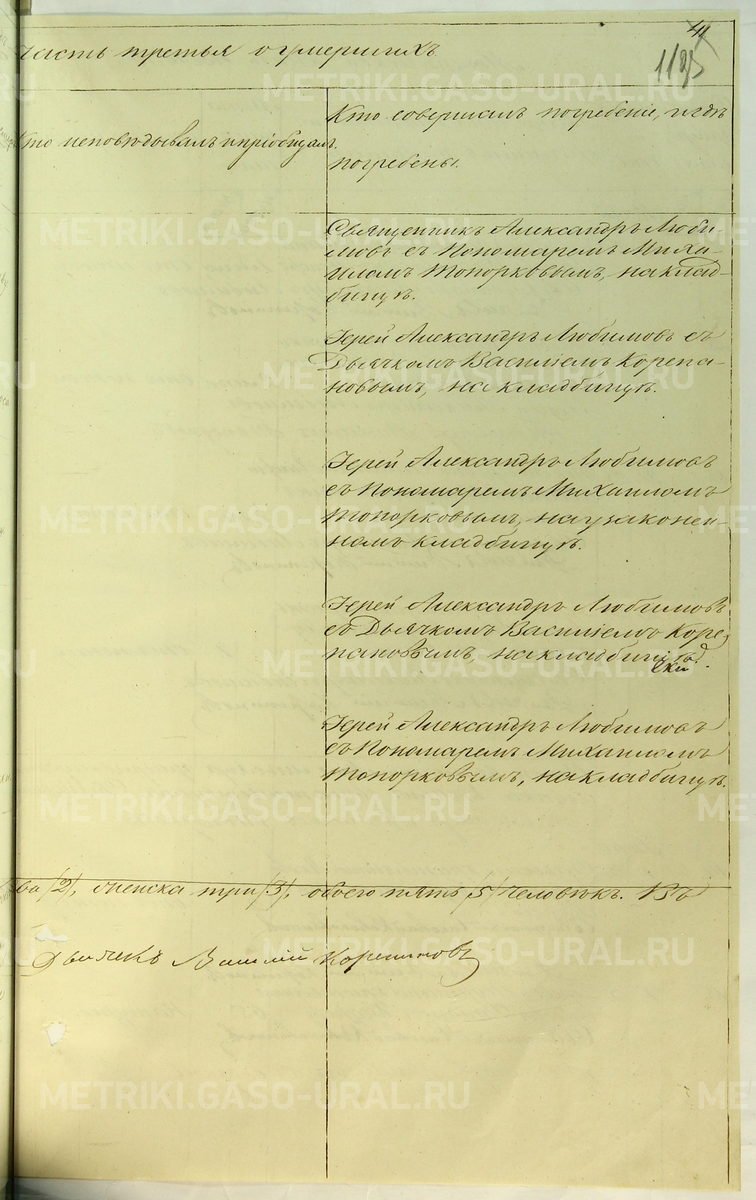 41
Часть третья о умершихъ
1195
Кто исповѣдывалъ и пріобщалъ.
Кто совершалъ погребеніе, и гдѣ
погребены.
Священникъ Александръ Люби-
мовъ съ Пономаремъ Миха-
иломъ Топорковымъ, на клад-
бищѣ.
Іерей Александръ Любимовъ съ
Дьячкомъ Василіемъ Корепа-
новымъ, на кладбищѣ.
Іерей Александръ Любимовъ
съ Пономаремъ Михаиломъ
Топорковымъ, на узаконен-
номъ кладбищѣ.
Іерей Александръ Любимовъ
съ Дьячкомъ Василіемъ Коре-
пановымъ, на кладбищѣ.
Іерей Александръ Любимовъ
съ Пономаремъ Михаиломъ
Топорковымъ, на кладбищѣ.
два /2/, женска три /3/, обоего пять /5/ человѣкъ. Въ
Дьячекъ Василій Корепановъ
METRIKI.GASO-URAL.RU